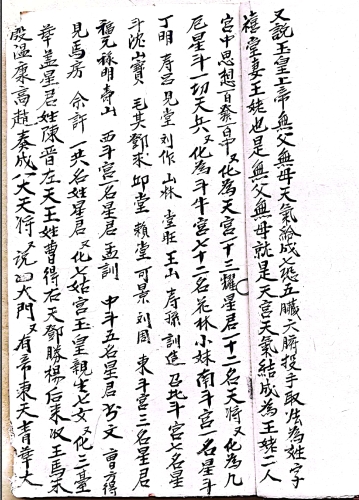 又說玉皇上帝無父無母天氣給成七孔五臟六腑投手取法為姓字
禧堂妻王姥也是無父無母就是天宮天氣結成為王姥二人
宮中思想百發百中又化為天宮十三曜星君十二名天將又化為九
尼星斗一切天兵又化為斗牛宮七十二名花林小妹南斗宮一名星斗
丁明 壽 見堂 刘作 山林 堂莊 王山 壽孫 訓造 召北斗宮七名星
斗沈山寶 毛其 鄧來 邱堂 賴堂 可景 刘周 東斗宮三名星君
福元 祿明 壽山 西斗宮一名星君 孟訓 中斗五名星君 得
見馬房 余許 一共名姓星君 又化七姑宮玉皇親生七女又化三臺
華蓋星君姓陳晉左天王姓曹得右天鄧勝楊后來收王馬朱
殷溫康高趙奏成八大天將 又說四大門 又有帝東天青華大